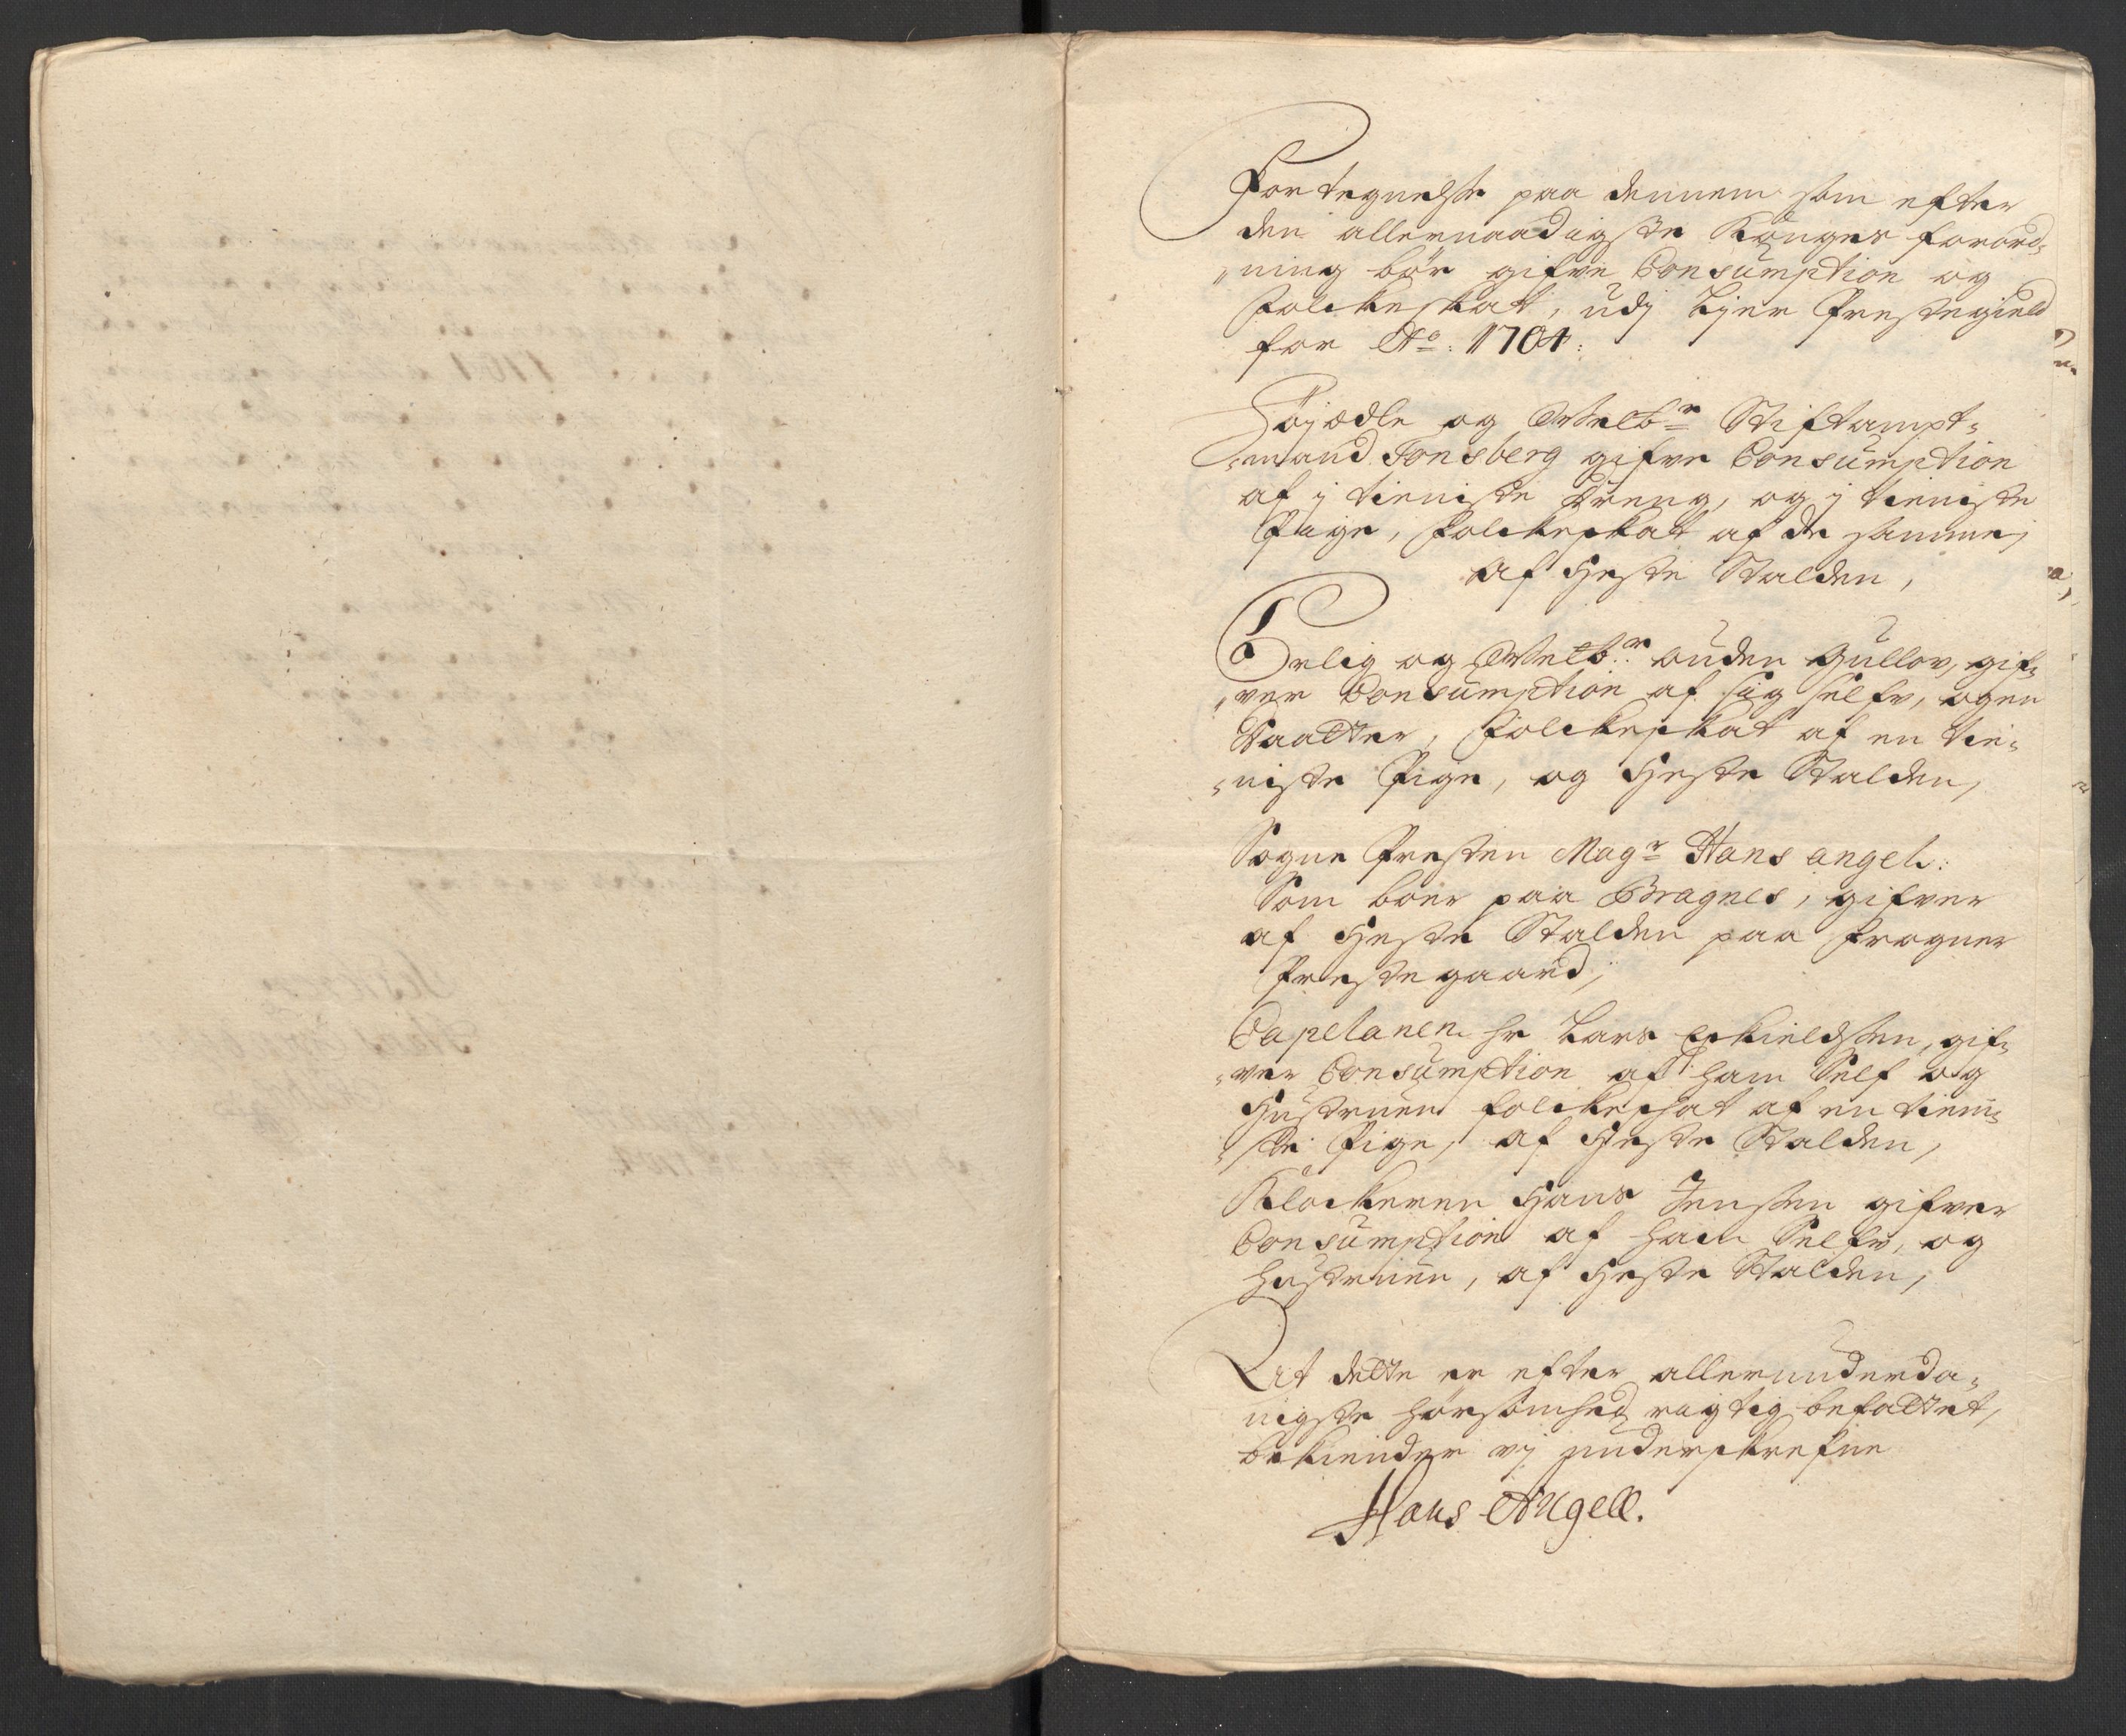 Fortegnelse paa dennem som efter
den allernaadigste Konges forord-
ning bör gifve Consumption og
folckeskat, udj Ljer Prestegield
for Ao: 1704:
Höyædle og Welbr Stiftampt-
mand Tonsberg gifver Consumption
af j tieniste dreng, og j tieniste
Pige, folckeskat af de samme,
af Heste Stalden,
Erlig og Welbr: anden Gullov, gif-
ver Consumption af sig self, og en
daatter, folckeskat af en tie-
niste Pige, og Heste Stalden,
Sogne Presten Magr Hans angel:
Som boer paa Bragnes, gifver
af Heste Stalden paa frogner
Prestegaard,
Capelanen hr Lars Eskieldsen, gif-
ver Consumption af ham Self og
Hustruen folckeskat af en tieni-
ste Pige, af Heste Stalden,
Klockeren Hans Jensen gifver
Consumption af ham Selfv, og
hustruen, af Heste Stalden,
At dette er efter allerunderda-
nigste hörsomhed rigtig befattet,
bekiender vj underskrefne
Hans Angell.